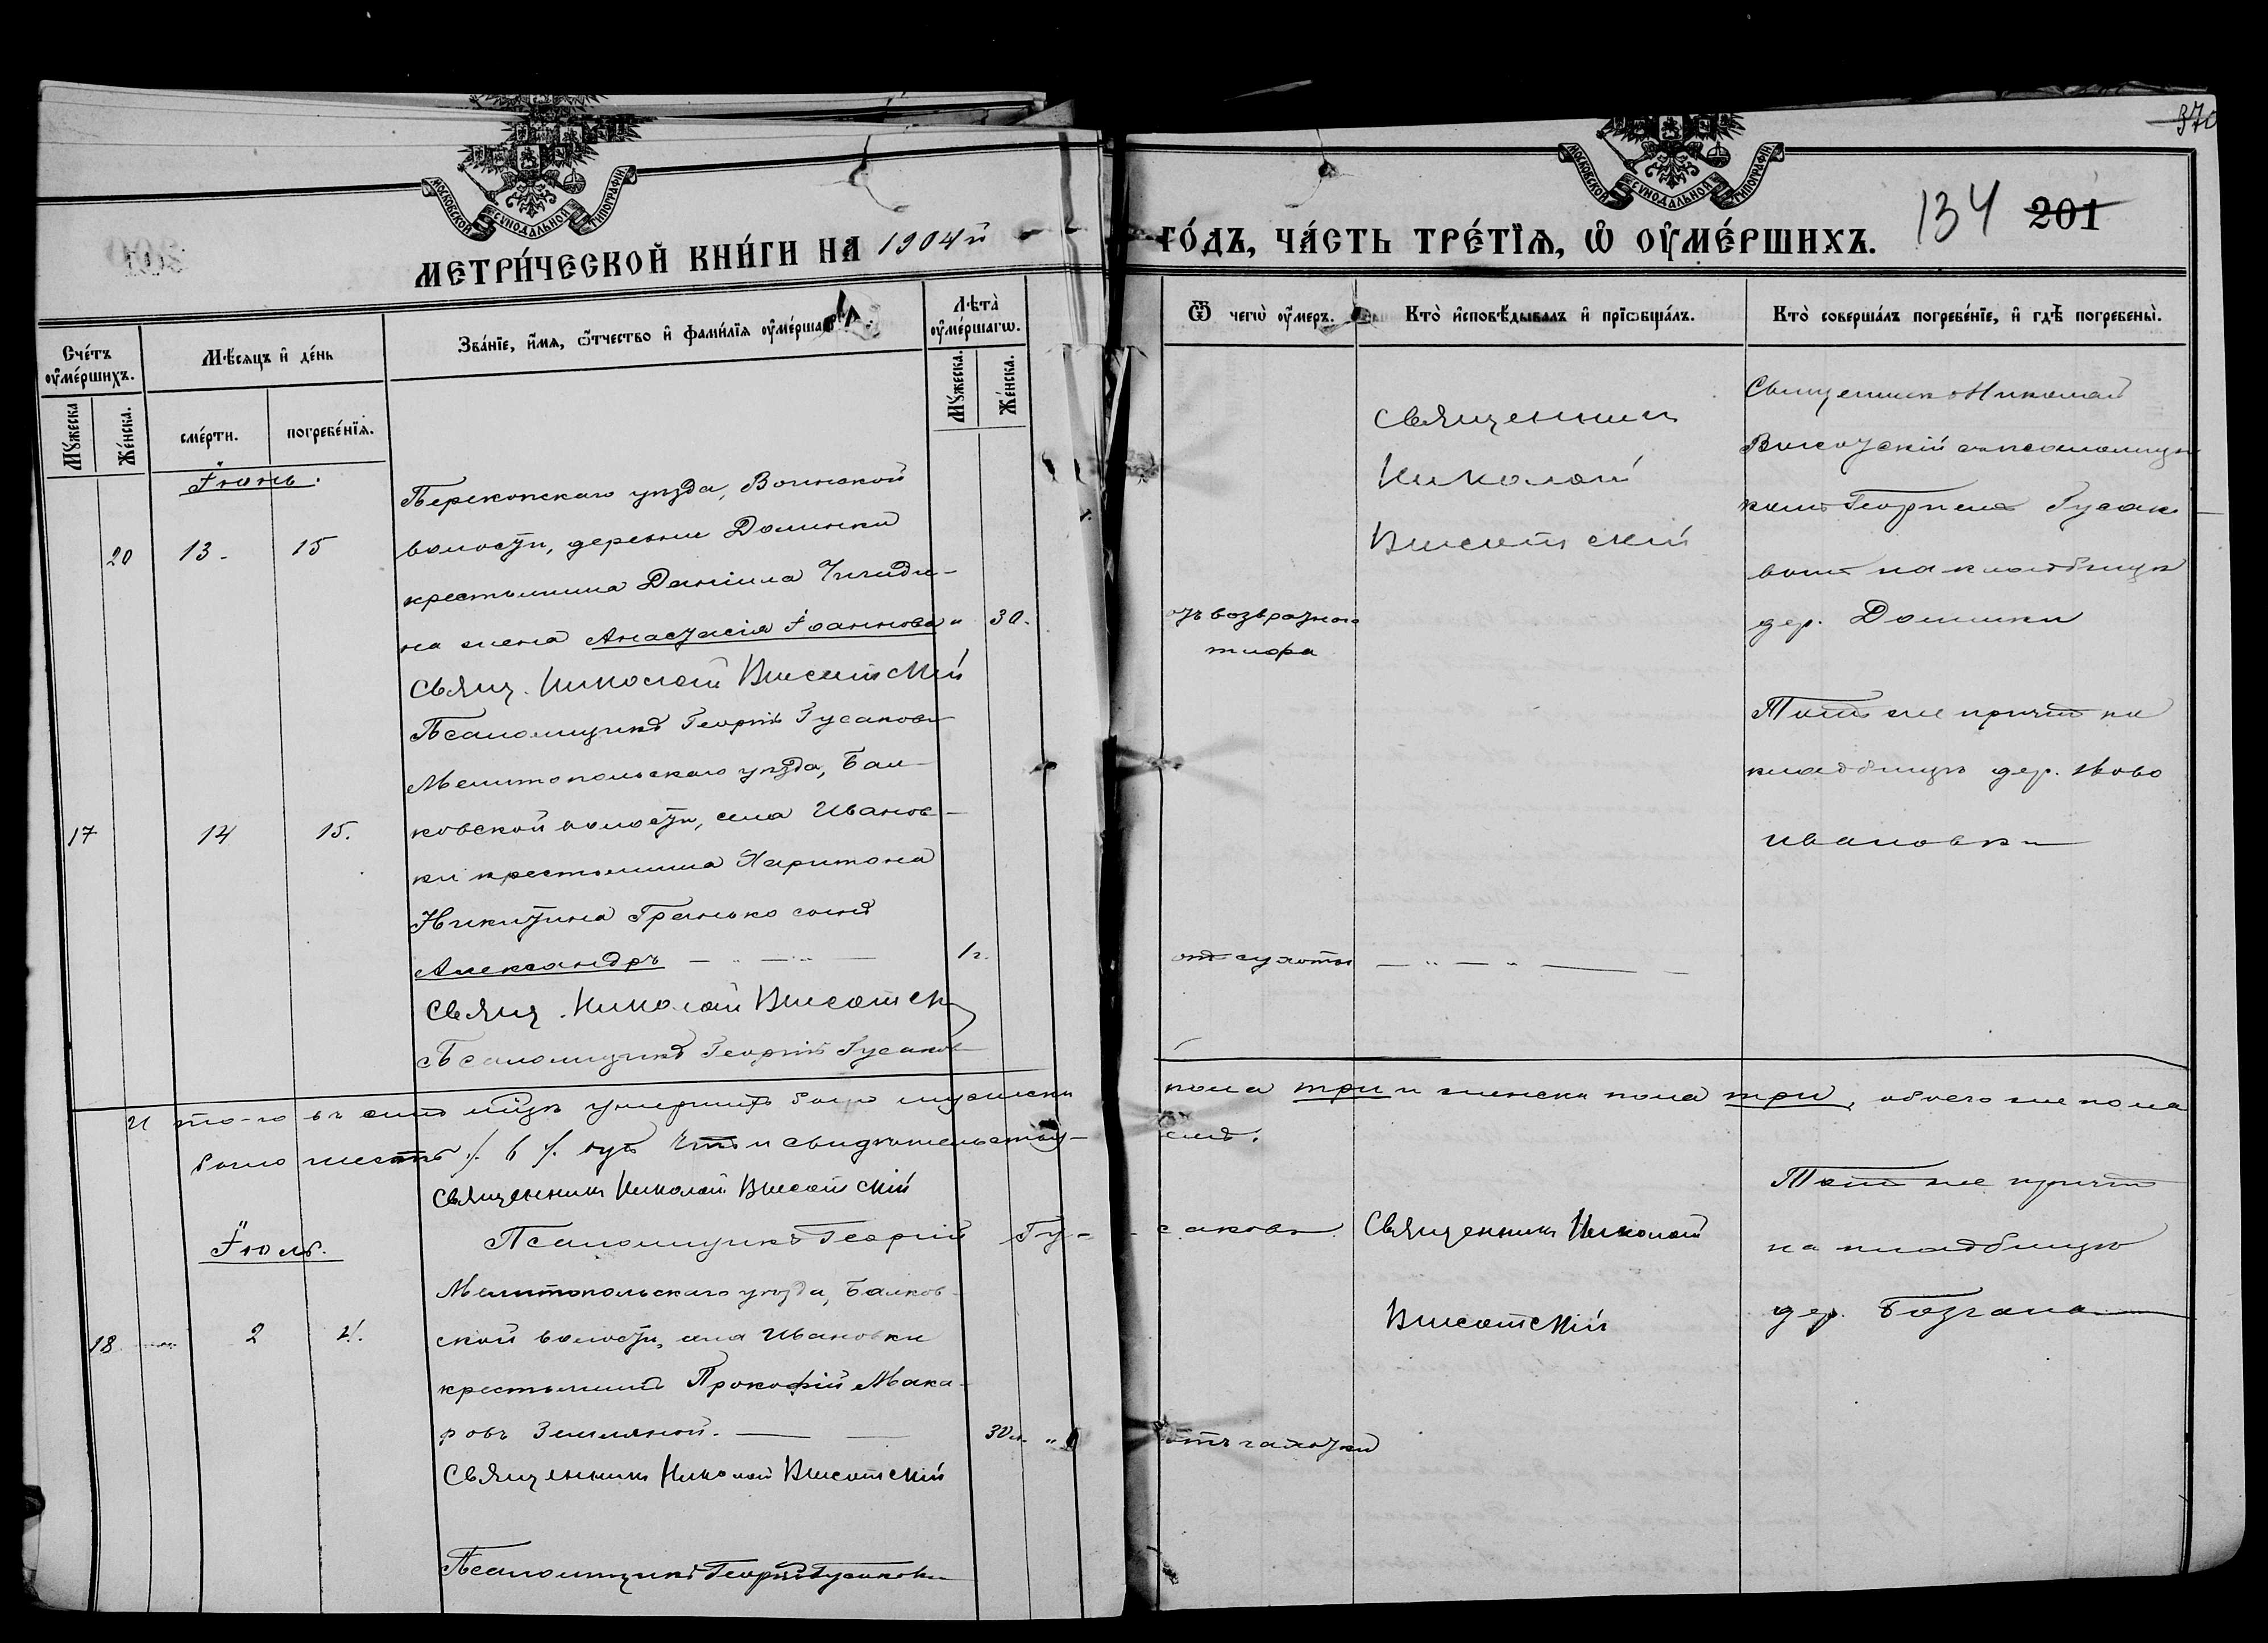 370
МОСКОВСКОЙ СѴНОДАЛЬНОЙ ТИПОГРАФІИ
МОСКОВСКОЙ СѴНОДАЛЬНОЙ ТИПОГРАФІИ
МЕТРИ́ЧЕСКОЙ КНИ́ГИ НА 1904й
ГО́ДЪ, ЧА́СТЬ ТРЕ́ТЇѦ, Ѽ ОУ҆МЕ́РШИХЪ.
134 201
Сче́тъ оу҆ме́ршихъ.
Мꙋ́жеска
Же́нска.
Мѣ́сяцъ и҆ де́нь
сме́рти.
погребе́нїѧ.
Зва́нїе, и҆́мѧ, ѻ҆́тчество и҆ фами́лїѧ оу҆ме́рша
Лѣ́та оу҆ме́ршагѡ.
Мꙋ́жеска.
Же́нска.
Ѿ чегѡ̀ оу҆́меръ.
Кто̀ и҆сповѣ́дывалъ и҆ прїѡбща́лъ.
Кто̀ соверша́лъ погребе́нїе, и҆ гдѣ̀ погребены̀.
Іюнь.
20 13. 15
Перекопскаго уѣзда, Воинской
волости, деревни Долинки
крестьянина Даніила
на жена Анасτасія Іоаннова „ 30.
Свящ. Николай Высотскій
Псаломщикъ Георгій Гусаковъ
отъ возвратнаго
тифа
Священникъ
Николай
Высотскій
Священникъ Николай
Высотскій съ псаломщи
комъ Георгіемъ Гусако
вымъ на кладбищѣ
дер. Долинки
17 14 15.
Мелитопольскаго уѣзда, Бал-
ковской волости, села Иванов-
ки крестьянина Харитона
Никитина Гранько сынъ
Александръ 1г.
Свящ. Николай Высотск
Псаломщикъ Георгій Гусаков
отъ сухоты
Тотъ же причтъ на
кладбищѣ дер. Ново
Ивановки
И то-го въ семъ мцѣ умершихъ было мужеска
пола три и женска пола три, обоего же пола
было шесть /. 6 /. Что и свидѣтельству-
емъ.
Священникъ Николай Высотскій
Псаломщикъ Георгій Гу-
саковъ.
Іюль.
18 2 4.
Мелитопольскаго уѣзда, Балков
ской волости, села Ивановки
крестьянинъ Прокофій Мака-
ровъ Земляной. 30л. „
Священникъ Николай Высотскій
Псаломщикъ Георгій Гусаковъ
отъ чахотки
Священникъ Николай
Высотскій
Тотъ же причтъ
на кладбищѣ
дер. Бозгана